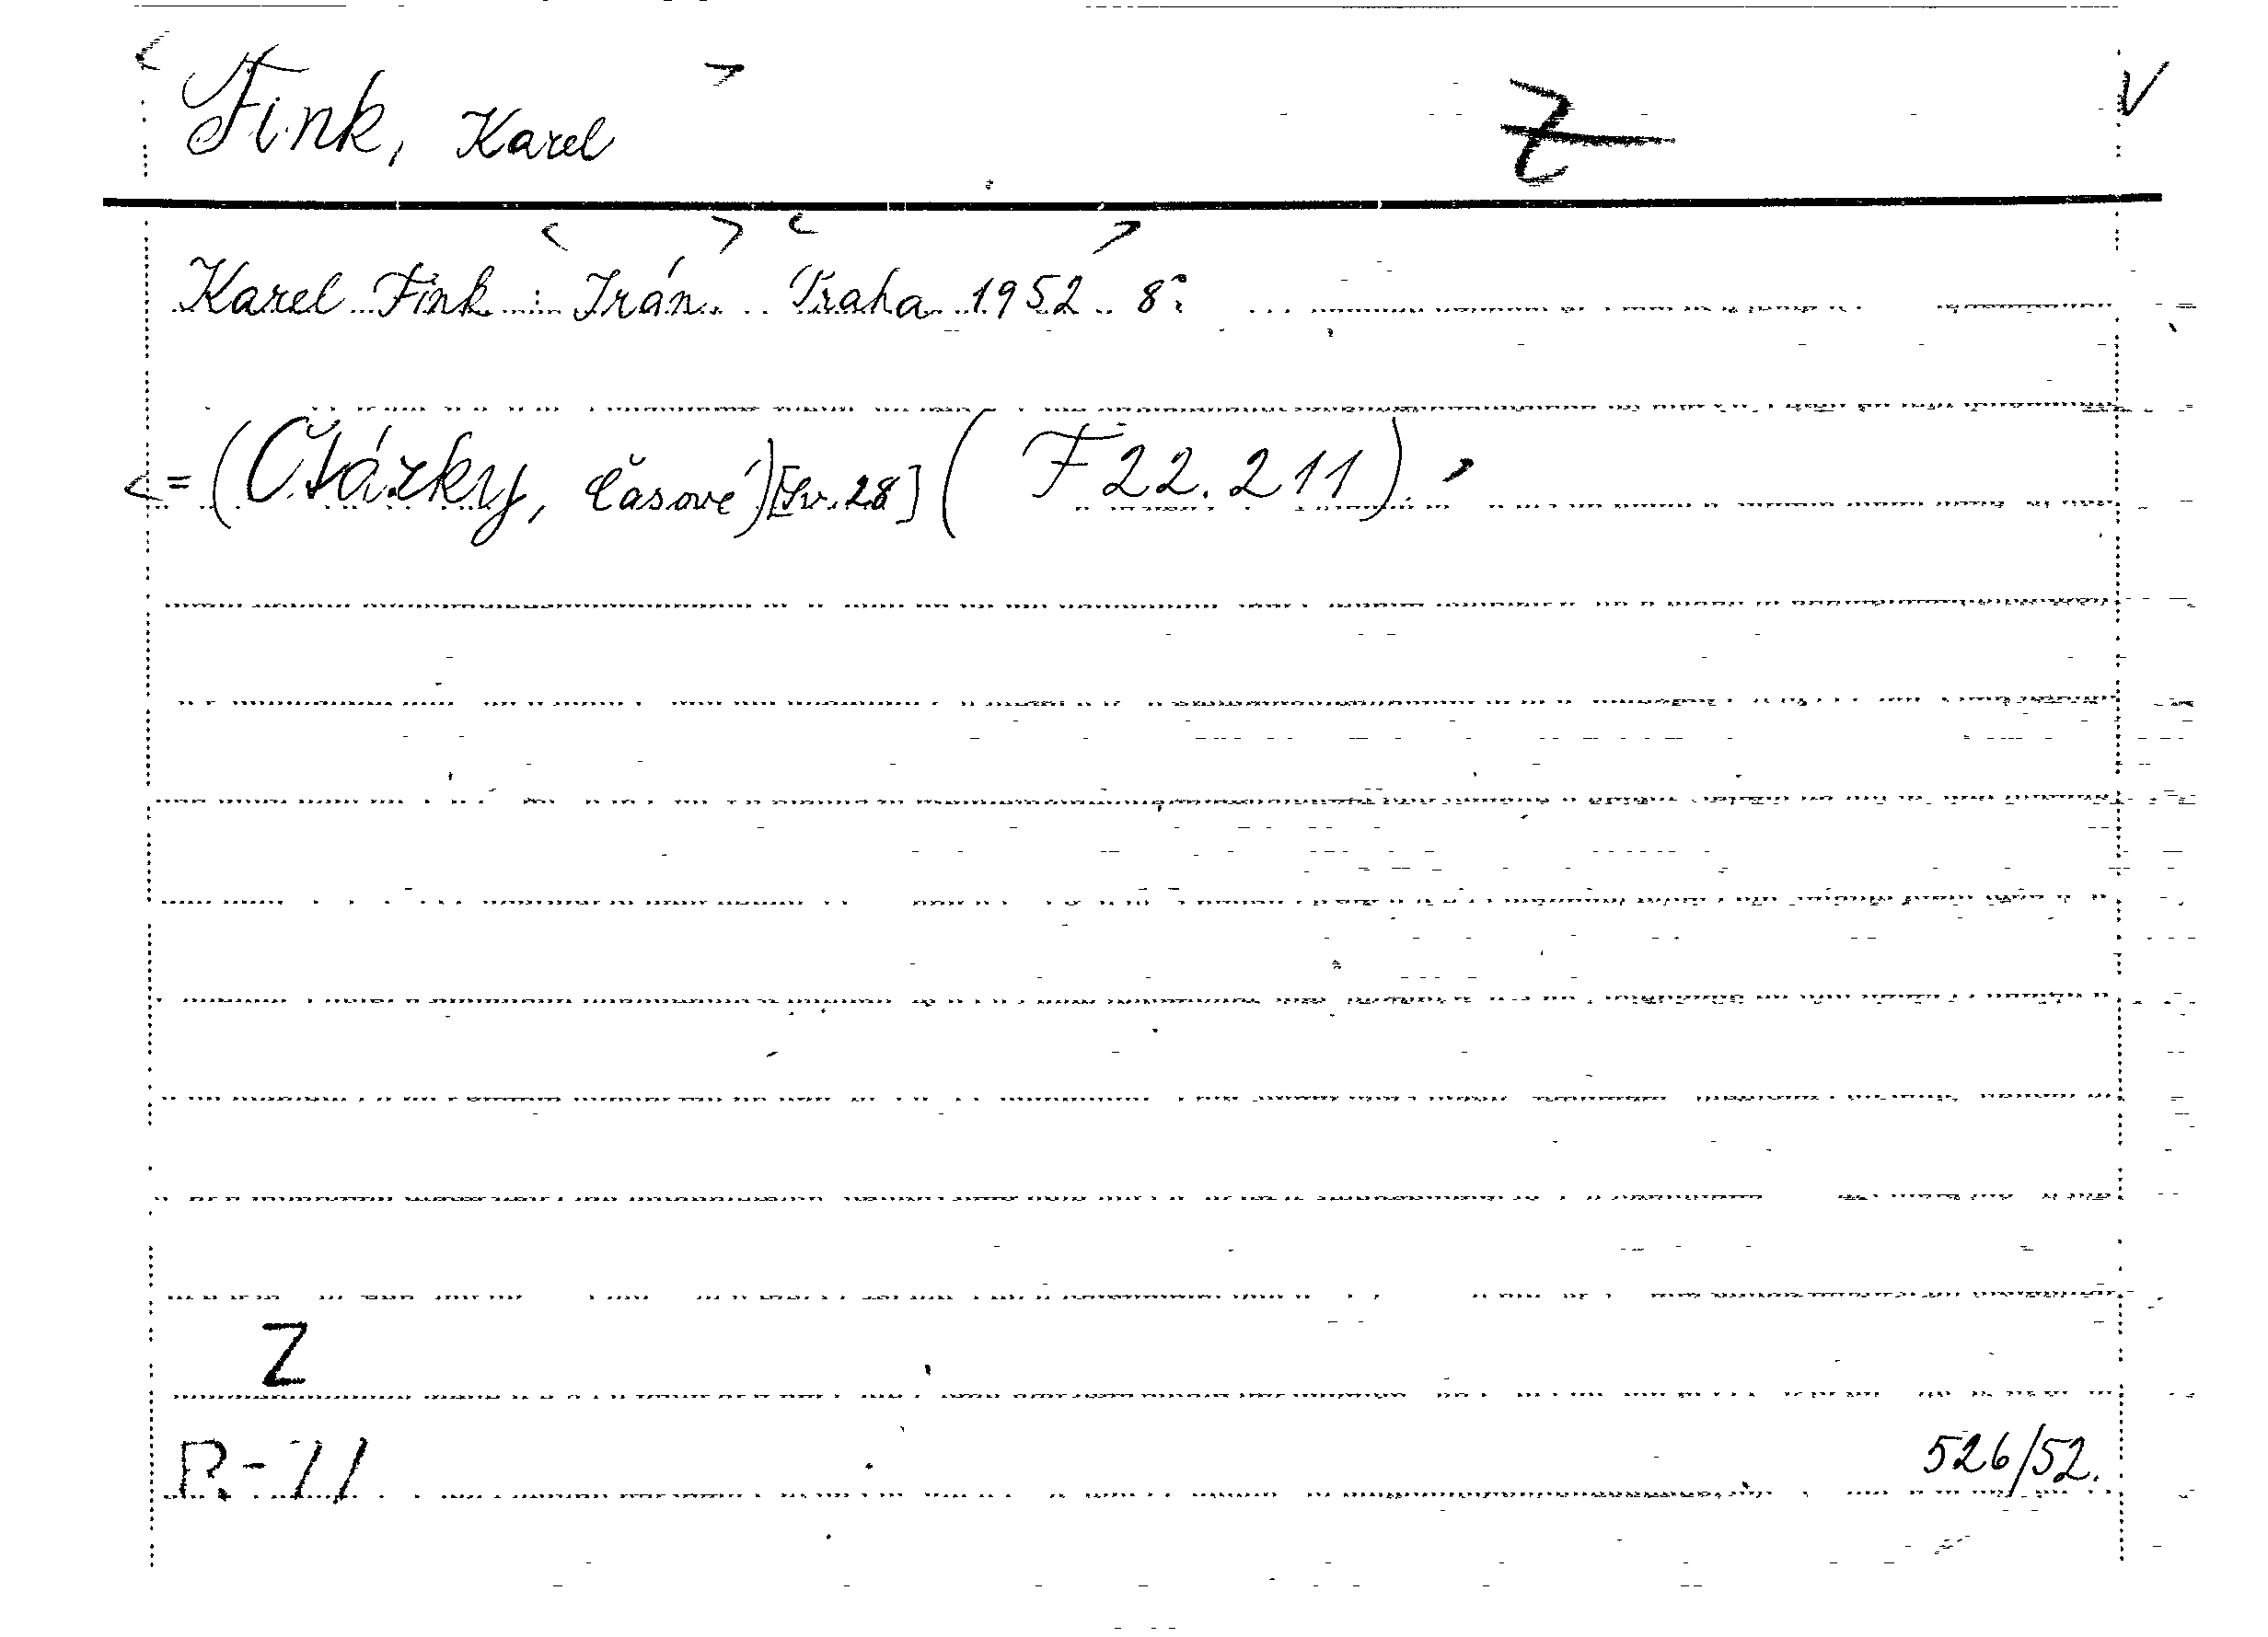 < Fink, Karel > Z V
Karel Fink : < Irán. > < Praha 1952 > 8°.
<= (Otázky, časové) [Sv. 28] ( F 22. 211). >
Z
R-71 526/52.